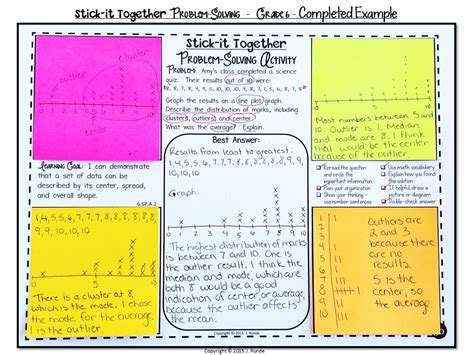 Stick-it Together Problem-Solving - Grade 6 - Completed Example
cluster
outlier
0
10
Stick-it Together
Problem-Solving Activity
Problem: Amy's class completed a science
quiz. Their results were out of 10:
Graph the results on a line plot graph.
Describe the distribution of marks, including
clusters, outliers and center.
What was the average? Explain.
0
10
Most numbers between 5 and
10. Outlier is 1. Median
and mode are 8. I think
that would be the center
because of the outlier
Learning Goal: I can demonstrate
that a set of data can be
described by its center, spread,
and overall shape.
6.SP.A.2
Best Answer:
Results from least to greatest:
1,4,5,5,6,7,7,7,8,8,8,8,8,9,9,
10,10,10
Graph:
0 1 2 3 4 5 6 7 8 9 10
The highest distribution of marks
is between 7 and 10. One is
the outlier result. I think the
median and mode, which are
both 8 would be a good
indication of center, or average,
because the outlier affects
the mean.
Reread the question
and circle the
important information
Plan your organization
Show your thinking -
use number sentences
Use math vocabulary
Explain how you
found the solution
If helpful, draw a
picture or diagram
Check your answer
There is a cluster at 8,
which is the mode. I chose
the mode for the average.
1 is the outlier.
1
2
3
4
5
6
7
8
9
10
Outliers
are 2 and
3 because
there are no
results.
5 is the
center, so
the average.
Copyright © 2015 J. Runde
Copyright © 2015 J. Runde